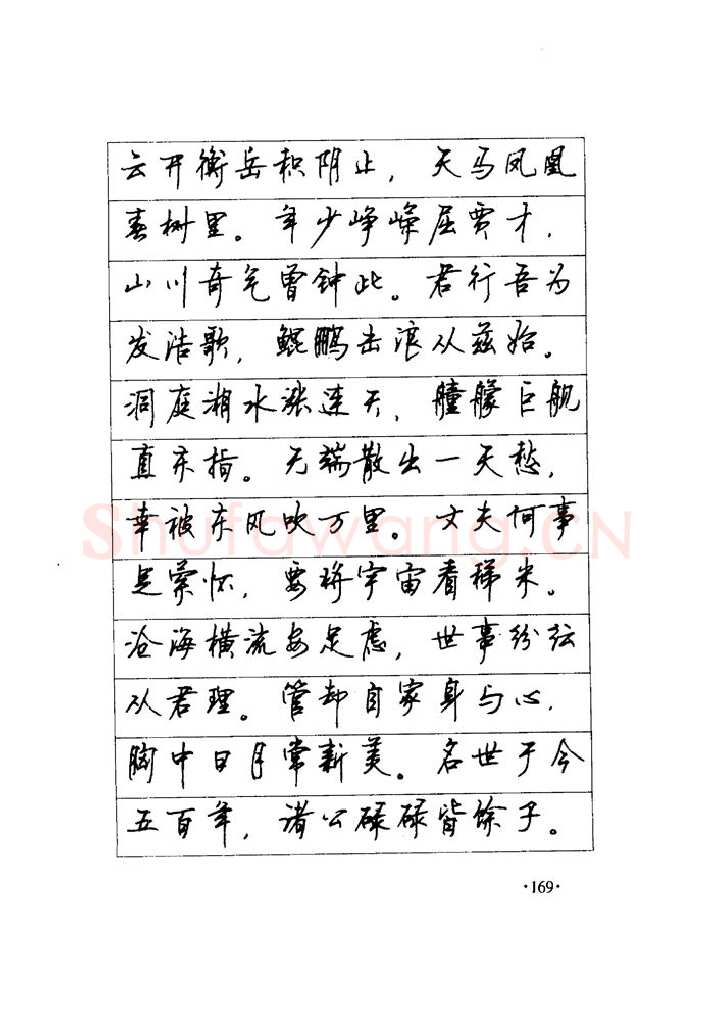 云开衡岳积阴止，天马凤凰
春树里。年少峥嵘屈贾才，
山川奇气曾钟此。君行吾为
发浩歌，鲲鹏击浪从兹始。
洞庭湘水涨连天，艟艨巨舰
直东指。无端散出一天愁，
幸被东风吹万里。丈夫何事
足萦怀，要将宇宙看稊米。
沧海横流安足虑，世事纷纭
从君理。管却自家身与心，
胸中日月常新美。名世于今
五百年，诸公碌碌皆馀子。
·169·
Shufawang.CN